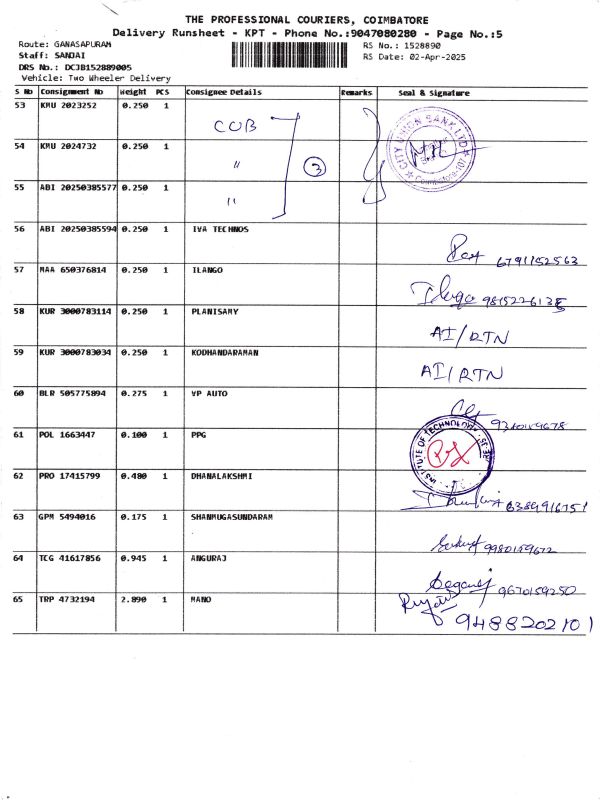 THE PROFESSIONAL COURIERS, COIMBATORE
Delivery Runsheet - KPT - Phone No.:9047080280 - Page No.:5
Route: GANASAPURAM
RS No.: 1528890
Staff: SANJAI
RS Date: 02-Apr-2025
DRS No.: DCJB152889005
Vehicle: Two Wheeler Delivery
S No Consignment No Weight PCS Consignee Details Remarks Seal & Signature
53 KMU 2023252 0.250 1 CUB
54 KMU 2024732 0.250 1 " 3
55 ABI 20250385577 0.250 1 "
CITY UNION BANK LTD
56 ABI 20250385594 0.250 1 IVA TECHNOS 6791152563
57 MAA 650376814 0.250 1 ILANGO Ilango
58 KUR 3000783114 0.250 1 PLANISAMY AI/RTN
59 KUR 3000783034 0.250 1 KODHANDARAMAN AI/RTN
60 BLR 505775894 0.275 1 VP AUTO
61 POL 1663447 0.100 1 PPG
INSTITUTE OF TECHNOLOGY
62 PRO 17415799 0.480 1 DHANALAKSHMI
63 GPM 5494016 0.175 1 SHANMUGASUNDARAM 9980159672
64 TCG 41617856 0.945 1 ANGURAJ 9670159250
65 TRP 4732194 2.890 1 MANO 9488202101